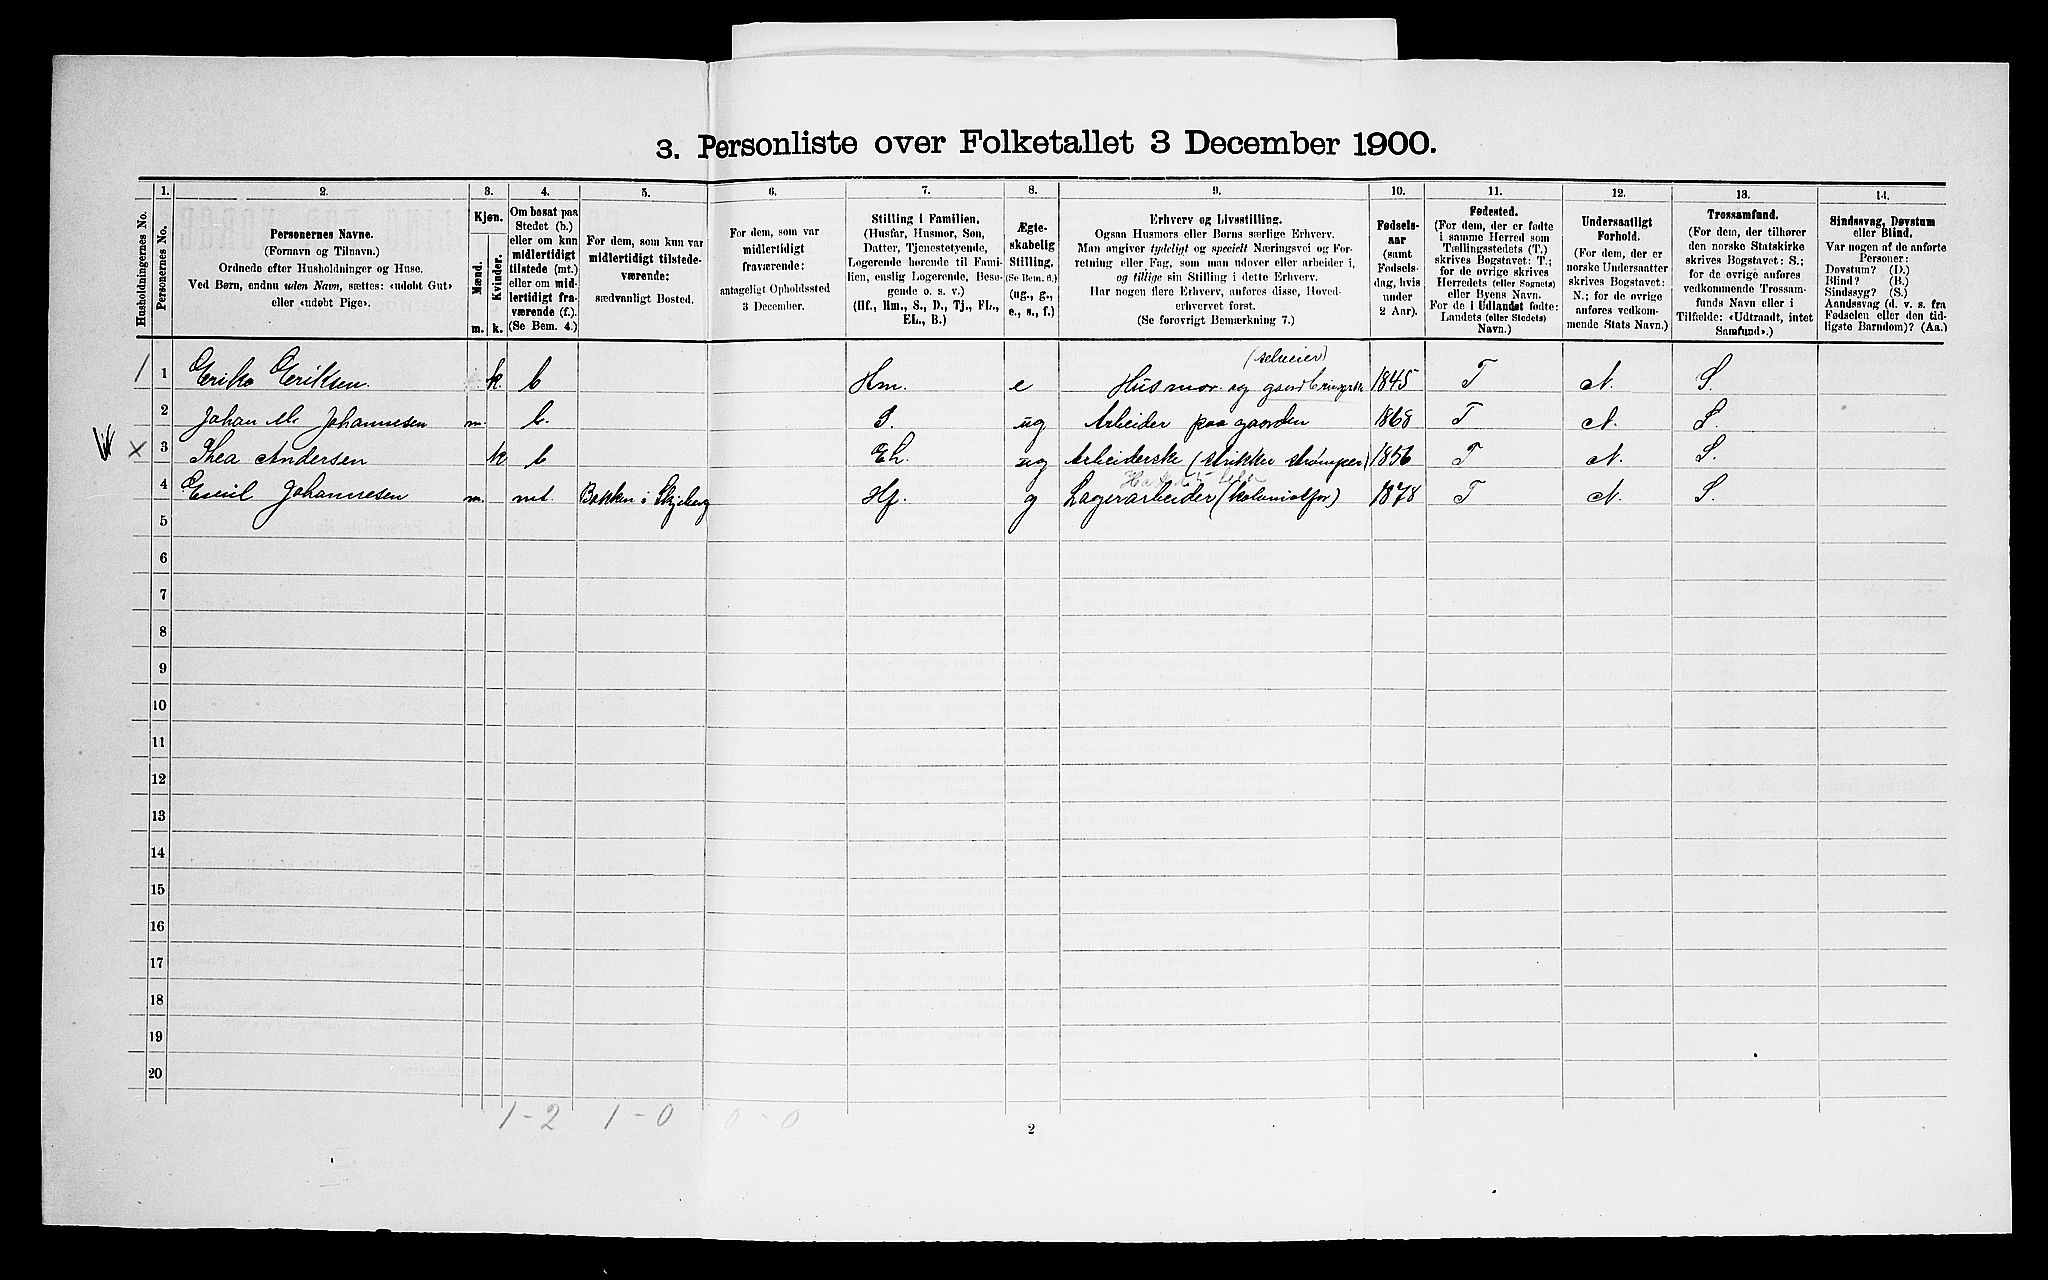 3. Personliste over Folketallet 3 December 1900.
Husholdningernes No.
1. Personernes No.
2. Personernes Navne.
(Fornavn og Tilnavn.)
Ordnede efter Husholdninger og Huse.
Ved Børn, endnu uden Navn, sættes: «udøbt Gut»
eller «udøbt Pige».
3. Kjøn.
Mænd. m.
Kvinder. k.
4. Om bosat paa
Stedet (b.)
eller om kun
midlertidigt
tilstede (mt.)
eller om mid-
lertidigt fra-
værende (f.).
(Se Bem. 4.)
5. For dem, som kun var
midlertidigt tilstede-
værende:
sædvanligt Bosted.
6. For dem, som var
midlertidigt
fraværende:
antageligt Opholdssted
3 December.
7. Stilling i Familien.
(Husfar, Husmor, Søn,
Datter, Tjenestetyende,
Logerende hørende til Fami-
lien, enslig Logerende, Besø-
gende o. s. v.)
(Hf., Hm., S., D., Tj., FL.,
EL., B.)
8. Ægte-
skabelig
Stilling.
(Se Bem. 6.)
(ug., g.,
e., s., f.)
9. Erhverv og Livsstilling.
Ogsaa Husmors eller Børns særlige Erhverv.
Man angiver tydeligt og specielt Næringsvei og For-
retning eller Fag, som man udøver eller arbeider i,
og tillige sin Stilling i dette Erhverv.
Har nogen flere Erhverv, anføres disse, Hoved-
erhvervet først.
(Se forøvrigt Bemærkning 7.)
10. Fødsels-
aar
(samt
Fødsels-
dag, hvis
under
2 Aar).
11. Fødested.
(For dem, der er fødte
i samme Herred som
Tællingsstedets (T.)
skrives Bogstavet: T.;
for de øvrige skrives
Herredets (eller Sognets)
eller Byens Navn.
For de i Udlandet fødte:
Landets (eller Stedets)
Navn.)
12. Undersaatligt
Forhold.
(For dem, der er
norske Undersaatter
skrives Bogstavet:
N.; for de øvrige
anføres vedkom-
mende Stats Navn.)
13. Trossamfund.
(For dem, der tilhører
den norske Statskirke
skrives Bogstavet: S.;
for de øvrige anføres
vedkommende Trossam-
funds Navn eller i
Tilfælde: «Udtraadt, intet
Samfund».)
14. Sindssvag, Døvstum
eller Blind.
Var nogen af de anførte
Personer:
Døvstum? (D.)
Blind? (B.)
Sindssyg? (S.)
Aandssvag (d. v. s. fra
Fødselen eller den tid-
ligste Barndom)? (Aa.)
(selveier)
1 1 Eriks Eriksen. k. b Hm. e Husmor og 1845 T N. S.
2 Johan M. Johannesen m. b. S. ug Arbeider paa gaarden 1868 T N. S.
x 3 Thea Andersen k b El. ug Arbeiderske (strikker strømper) 1856 T N. S.
4 Emil Johannesen m. mt. Bakken i Skjeberg Hf. g Lagerarbeider (kolonialfor) 1878 T N. S.
5
6
7
8
9
10
11
12
13
14
15
16
17
18
19
20
1 - 2 1 - 0 0 - 0
2